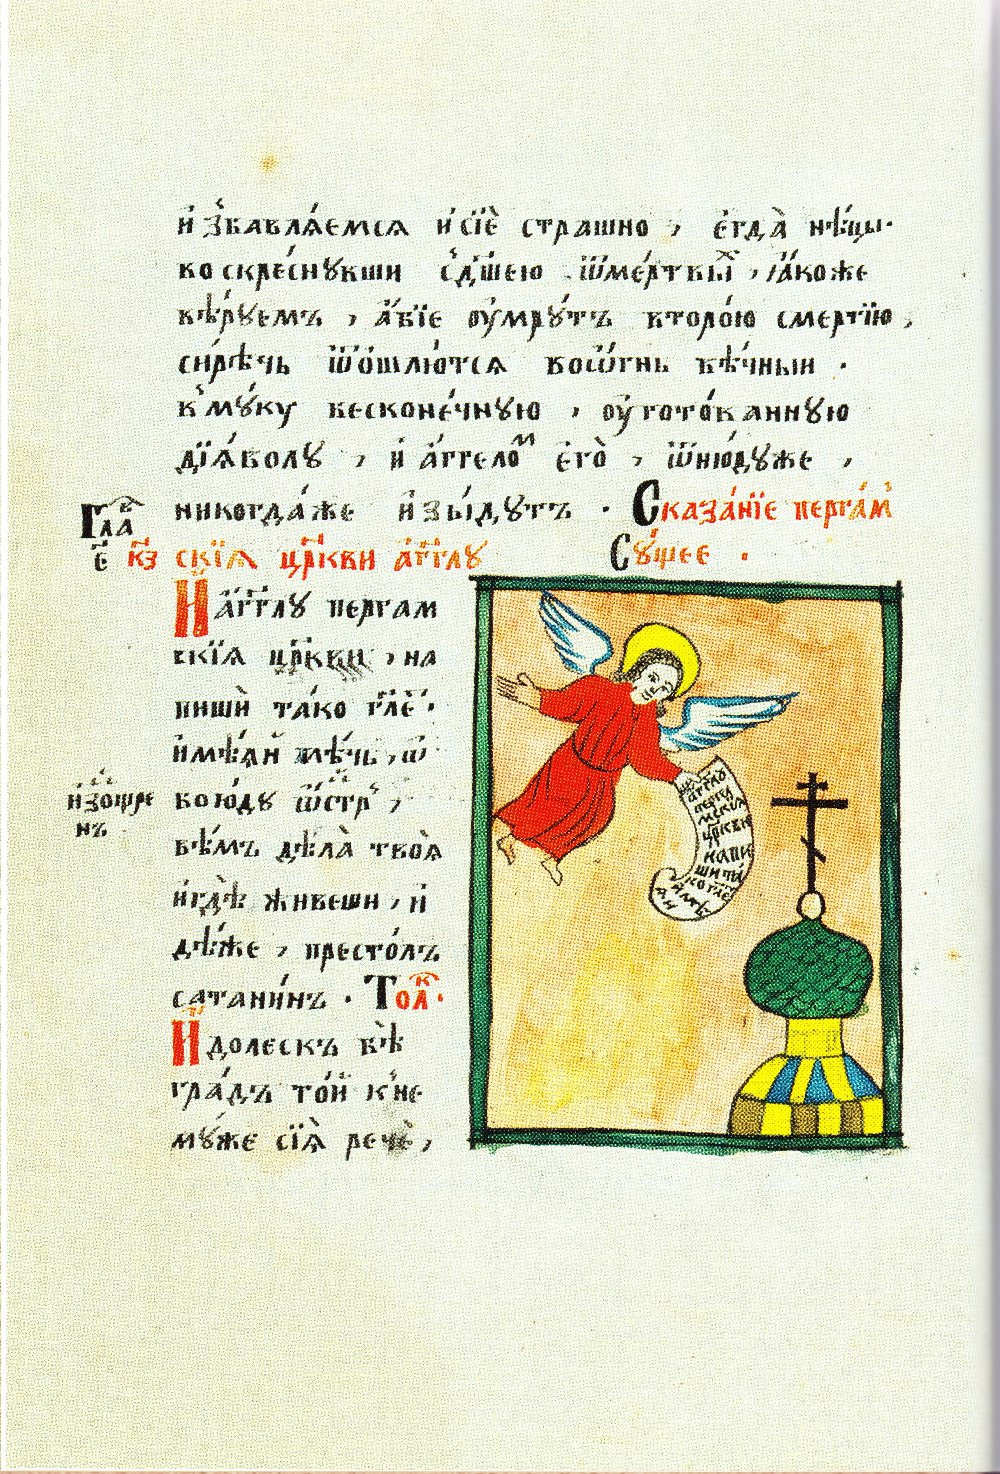 и҆ з̾бавлѧ́емсѧ и҆ сїѐ страшно , є҆гда̀ нѣ́цы·
воскре́снꙋвши с̾д꙽ше́ю ѿ ме́ртвыⷯ , ꙗ҆́коже
вѣ́рꙋемъ , а҆́бїе оу҆мрꙋ́тъ второ́ю сме́ртїю ,
си́рѣчь ѿошлю́тсѧ во ѻ҆́гнь вѣ́чныи ·
в̾ мꙋ́кꙋ бесконе́чнꙋю , оу҆гото́ваннꙋю
дїѧ́волꙋ , и҆ а҆́ггелоⷨ є҆го̀ , ѿню́дꙋже ,
никогда́же и҆зы́дꙋтъ · Сказа́нїе перга́м̾
Глаⷡ҇а
є҃ к҃з скїѧ цр҃кви а҆́гг҃лꙋ Сꙋ́щее ·
И҆ а҆́гг҃лꙋ пергам
скїѧ цр҃кви , на
пишѝ та́ко гл҃е ·
и҆мѣ́ѧи ме́чь , ѡ҆
бою́дꙋ ѿстр̾ ,
и҆зо́щре
нъ
вѣ́мъ дѣла̀ твоѧ̀
и҆гдѣ̀ живеши , и҆
дѣ́же , престо́лъ
сатани́нъ · Толⷦ҇ ·
И҆долескъ бѣ̀
гра́дъ то́й к̾ не
мꙋ́же сїѧ̀ речѐ ,
а҆гг҃лꙋ
перга
мскїѧ
цр҃кви
напи
ши та́
ко гл҃е